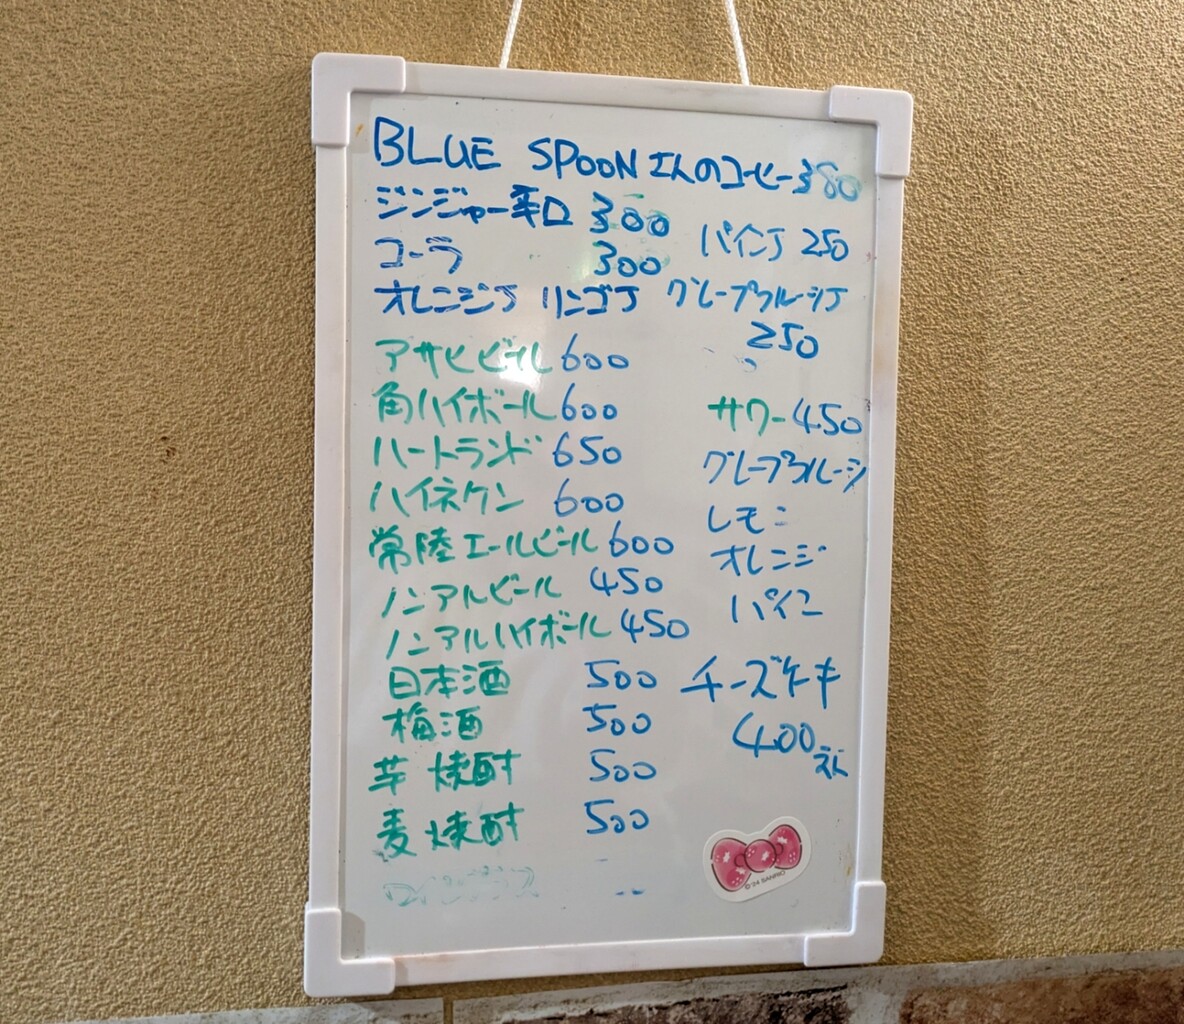 BLUE SPOONさんのコーヒー380
ジンジャー辛口 300
パインJ 250
コーラ 300
オレンジJ リンゴJ グレープフルーツJ
250
アサヒビール 600
角ハイボール 600
サワー 450
ハートランド 650
グレープフルーツ
ハイネケン 600
レモン
常陸エールビール 600
オレンジ
ノンアルビール 450
パイン
ノンアルハイボール 450
日本酒 500
チーズケーキ
梅酒 500
400
芋焼酎 500
麦焼酎 500
©'24 SANRIO